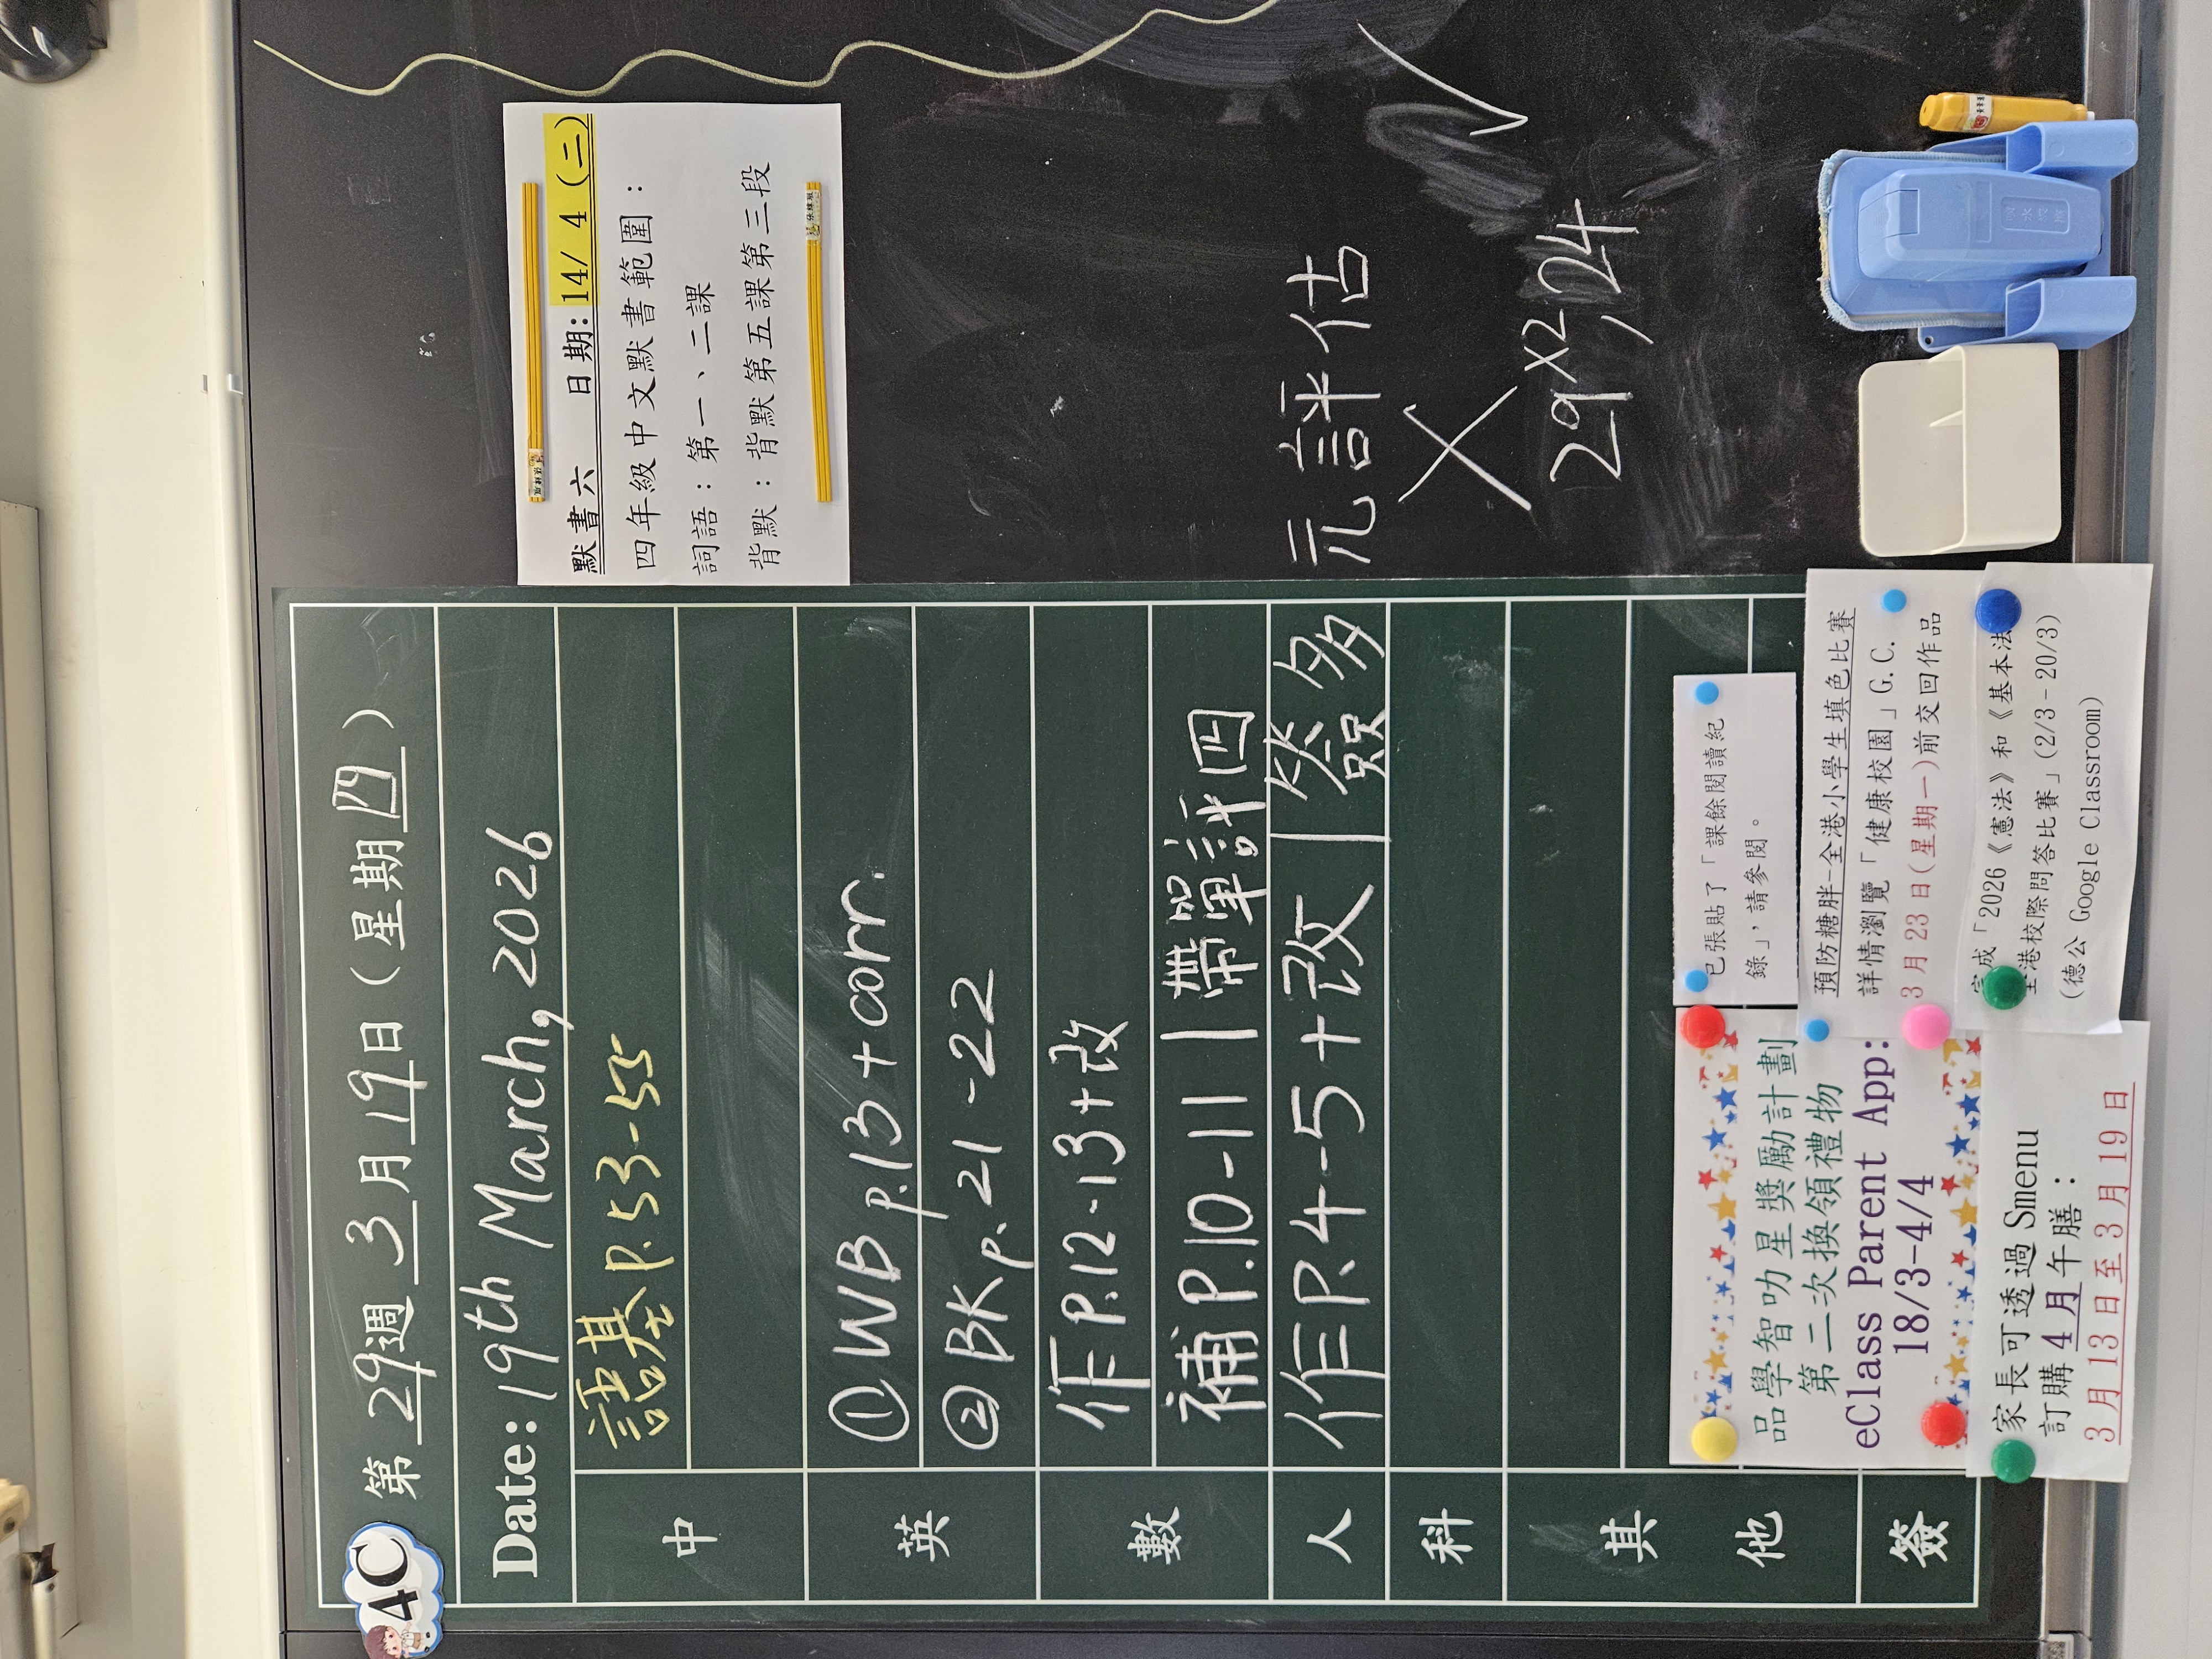 4C
第 29 週 3 月 19 日 (星期四)
Date: 19th March, 2026
中
語基 p.53-55
英
① WB p.13 + corr.
② BK p.21-22
數
作 P.12-13+改
補 P.10-11 | 帶單評四
人
作 P.4-5+改 | 簽多
科
其
他
簽
默書六 日期: 14/ 4 (二)
四年級中文默書範圍:
詞語: 第一、二課
背默: 背默第五課第三段
元評估
29×2,24
已張貼了「課餘閱讀紀
錄」, 請參閱。
預防糖胖-全港小學生填色比賽
詳情瀏覽「健康校園」G.C.
3 月 23 日(星期一)前交回作品
完成「2026《憲法》和《基本法
全港校際問答比賽」(2/3-20/3)
(德公 Google Classroom)
品學智叻星獎勵計劃
第二次換領禮物
eClass Parent App:
18/3-4/4
家長可透過 Smenu
訂購 4 月午膳:
3 月 13 日至 3 月 19 日